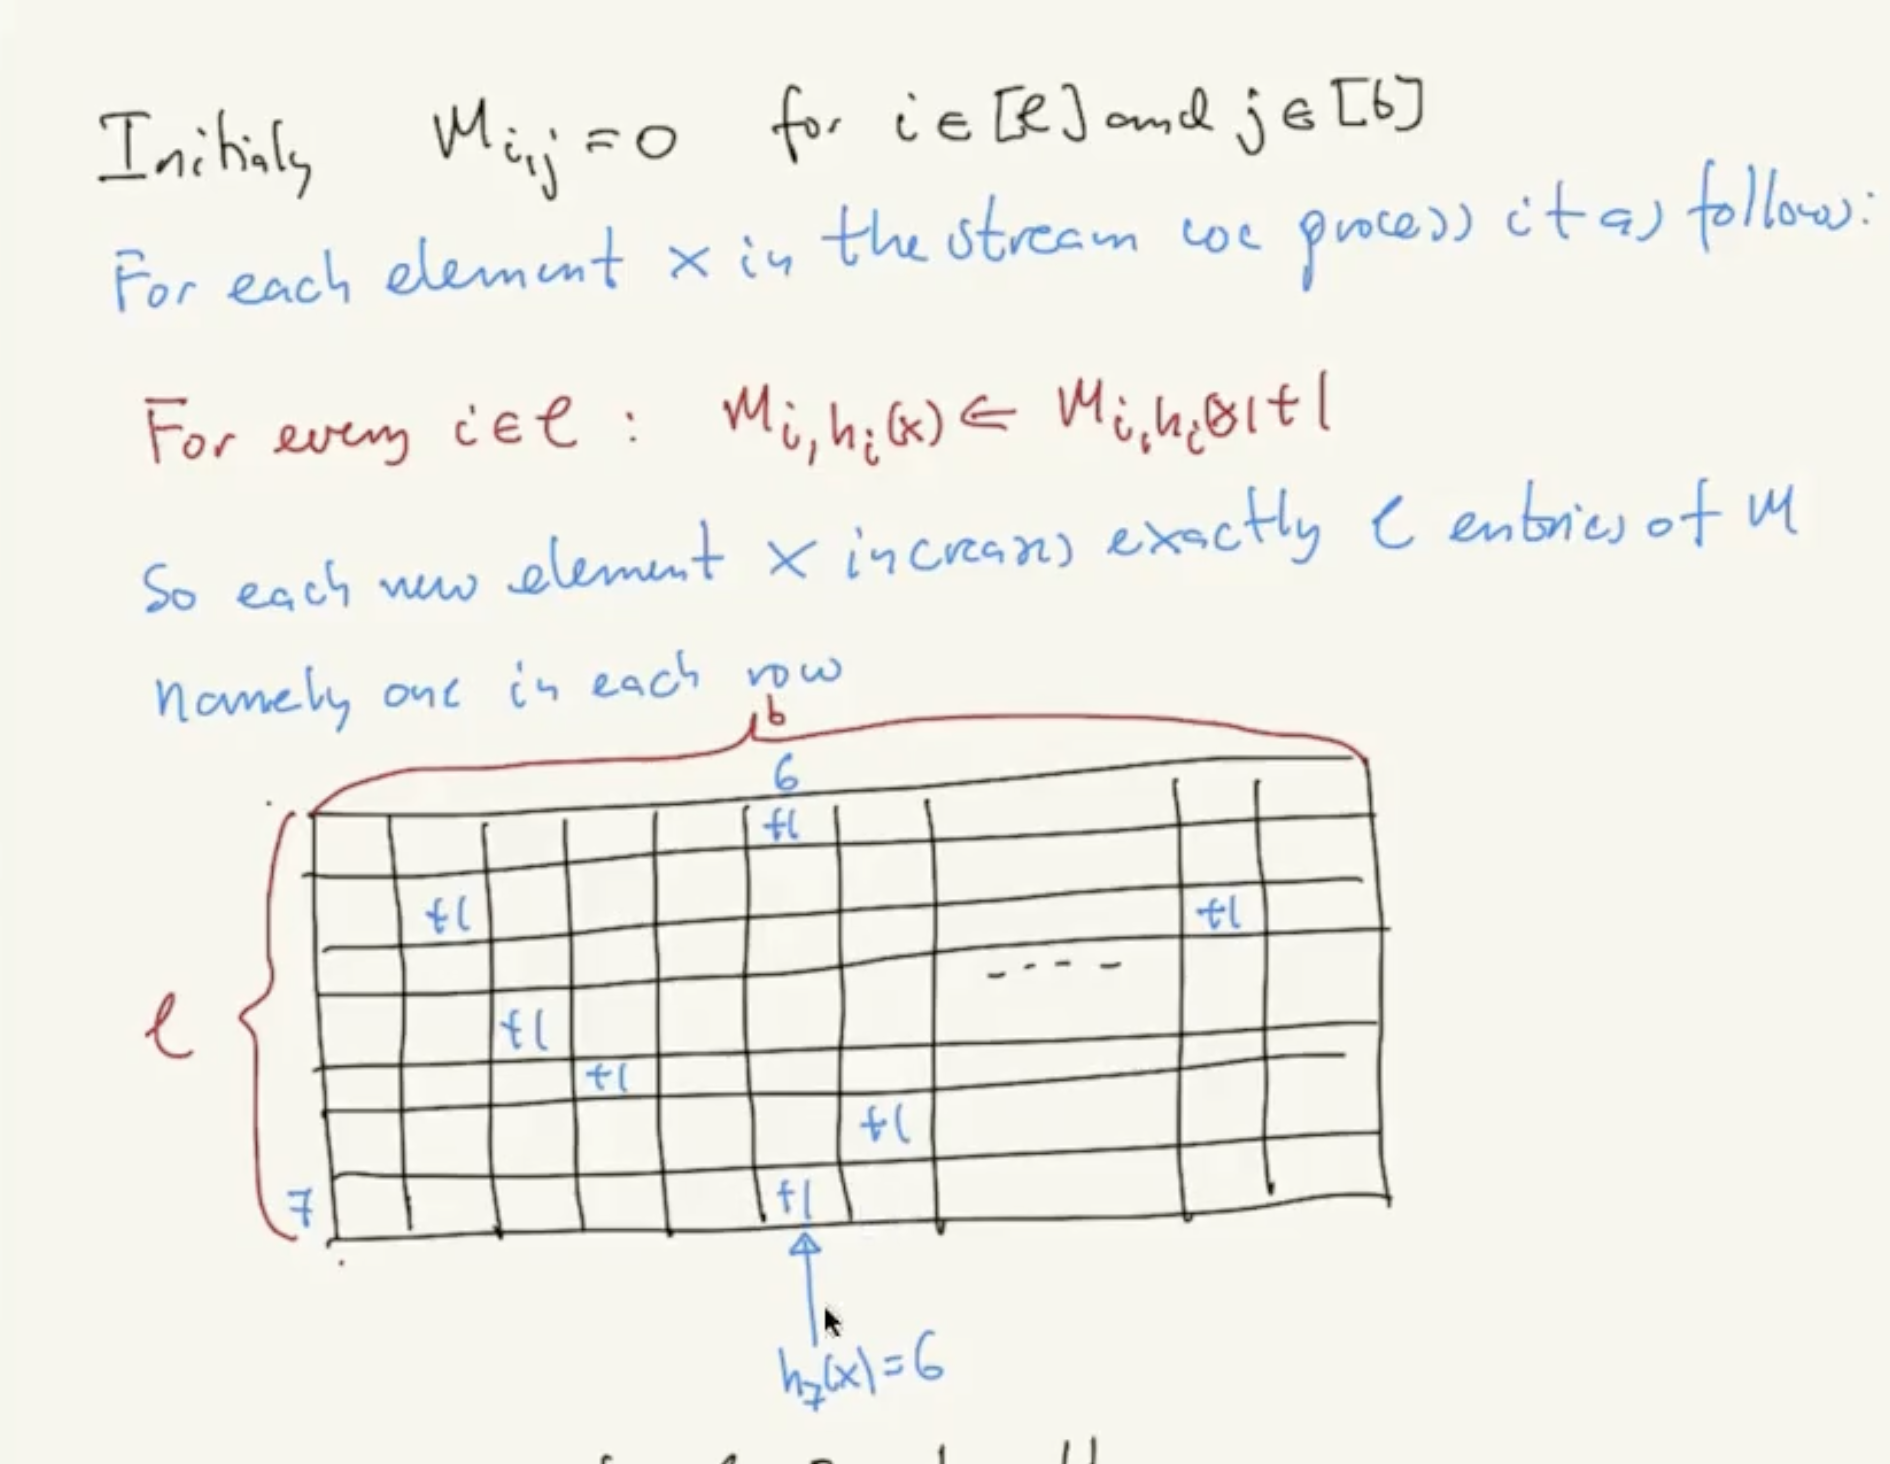 Initialy M_{i,j} = 0 for i ∈ [ℓ] and j ∈ [b]
For each element x in the stream we process it as follows:
For every i ∈ ℓ : M_{i,h_i(x)} ← M_{i,h_i(x)} + 1
So each new element x increases exactly ℓ entries of M
namely one in each row
b
6
+1
+1 +1
- - - -
ℓ
+1
+1
+1
7 +1
h_7(x) = 6